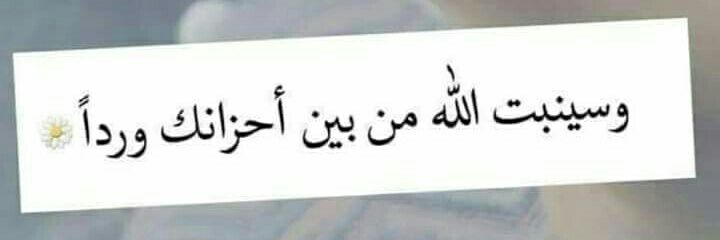 وسينبت الله من بين أحزانك ورداً🌼